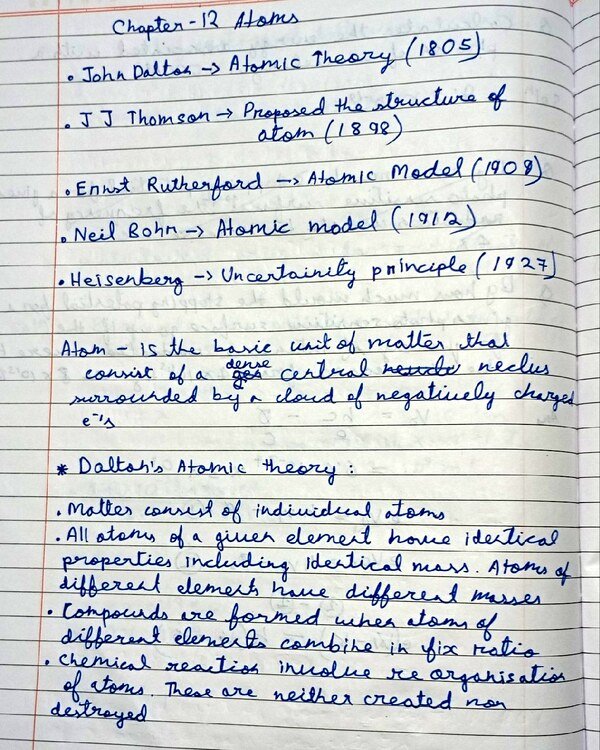 Chapter-12 Atoms
• John Dalton → Atomic Theory (1805)
• J J Thomson → Proposed the structure of
atom (1898)
• Ernst Rutherford → Atomic Model (1909)
• Neil Bohr → Atomic model (1912)
• Heisenberg → Uncertainity principle (1927)
Atom - is the basic unit of matter that
consist of a dense central neclus
surrounded by a cloud of negatively charged
e⁻'s
* Dalton's Atomic theory :
• Matter consist of individual atoms
• All atoms of a given element have identical
properties including identical mass. Atoms of
different elements have different masses
• Compounds are formed when atoms of
different elements combine in fix ratio
• Chemical reaction involve re organisation
of atoms. These are neither created nor
destroyed